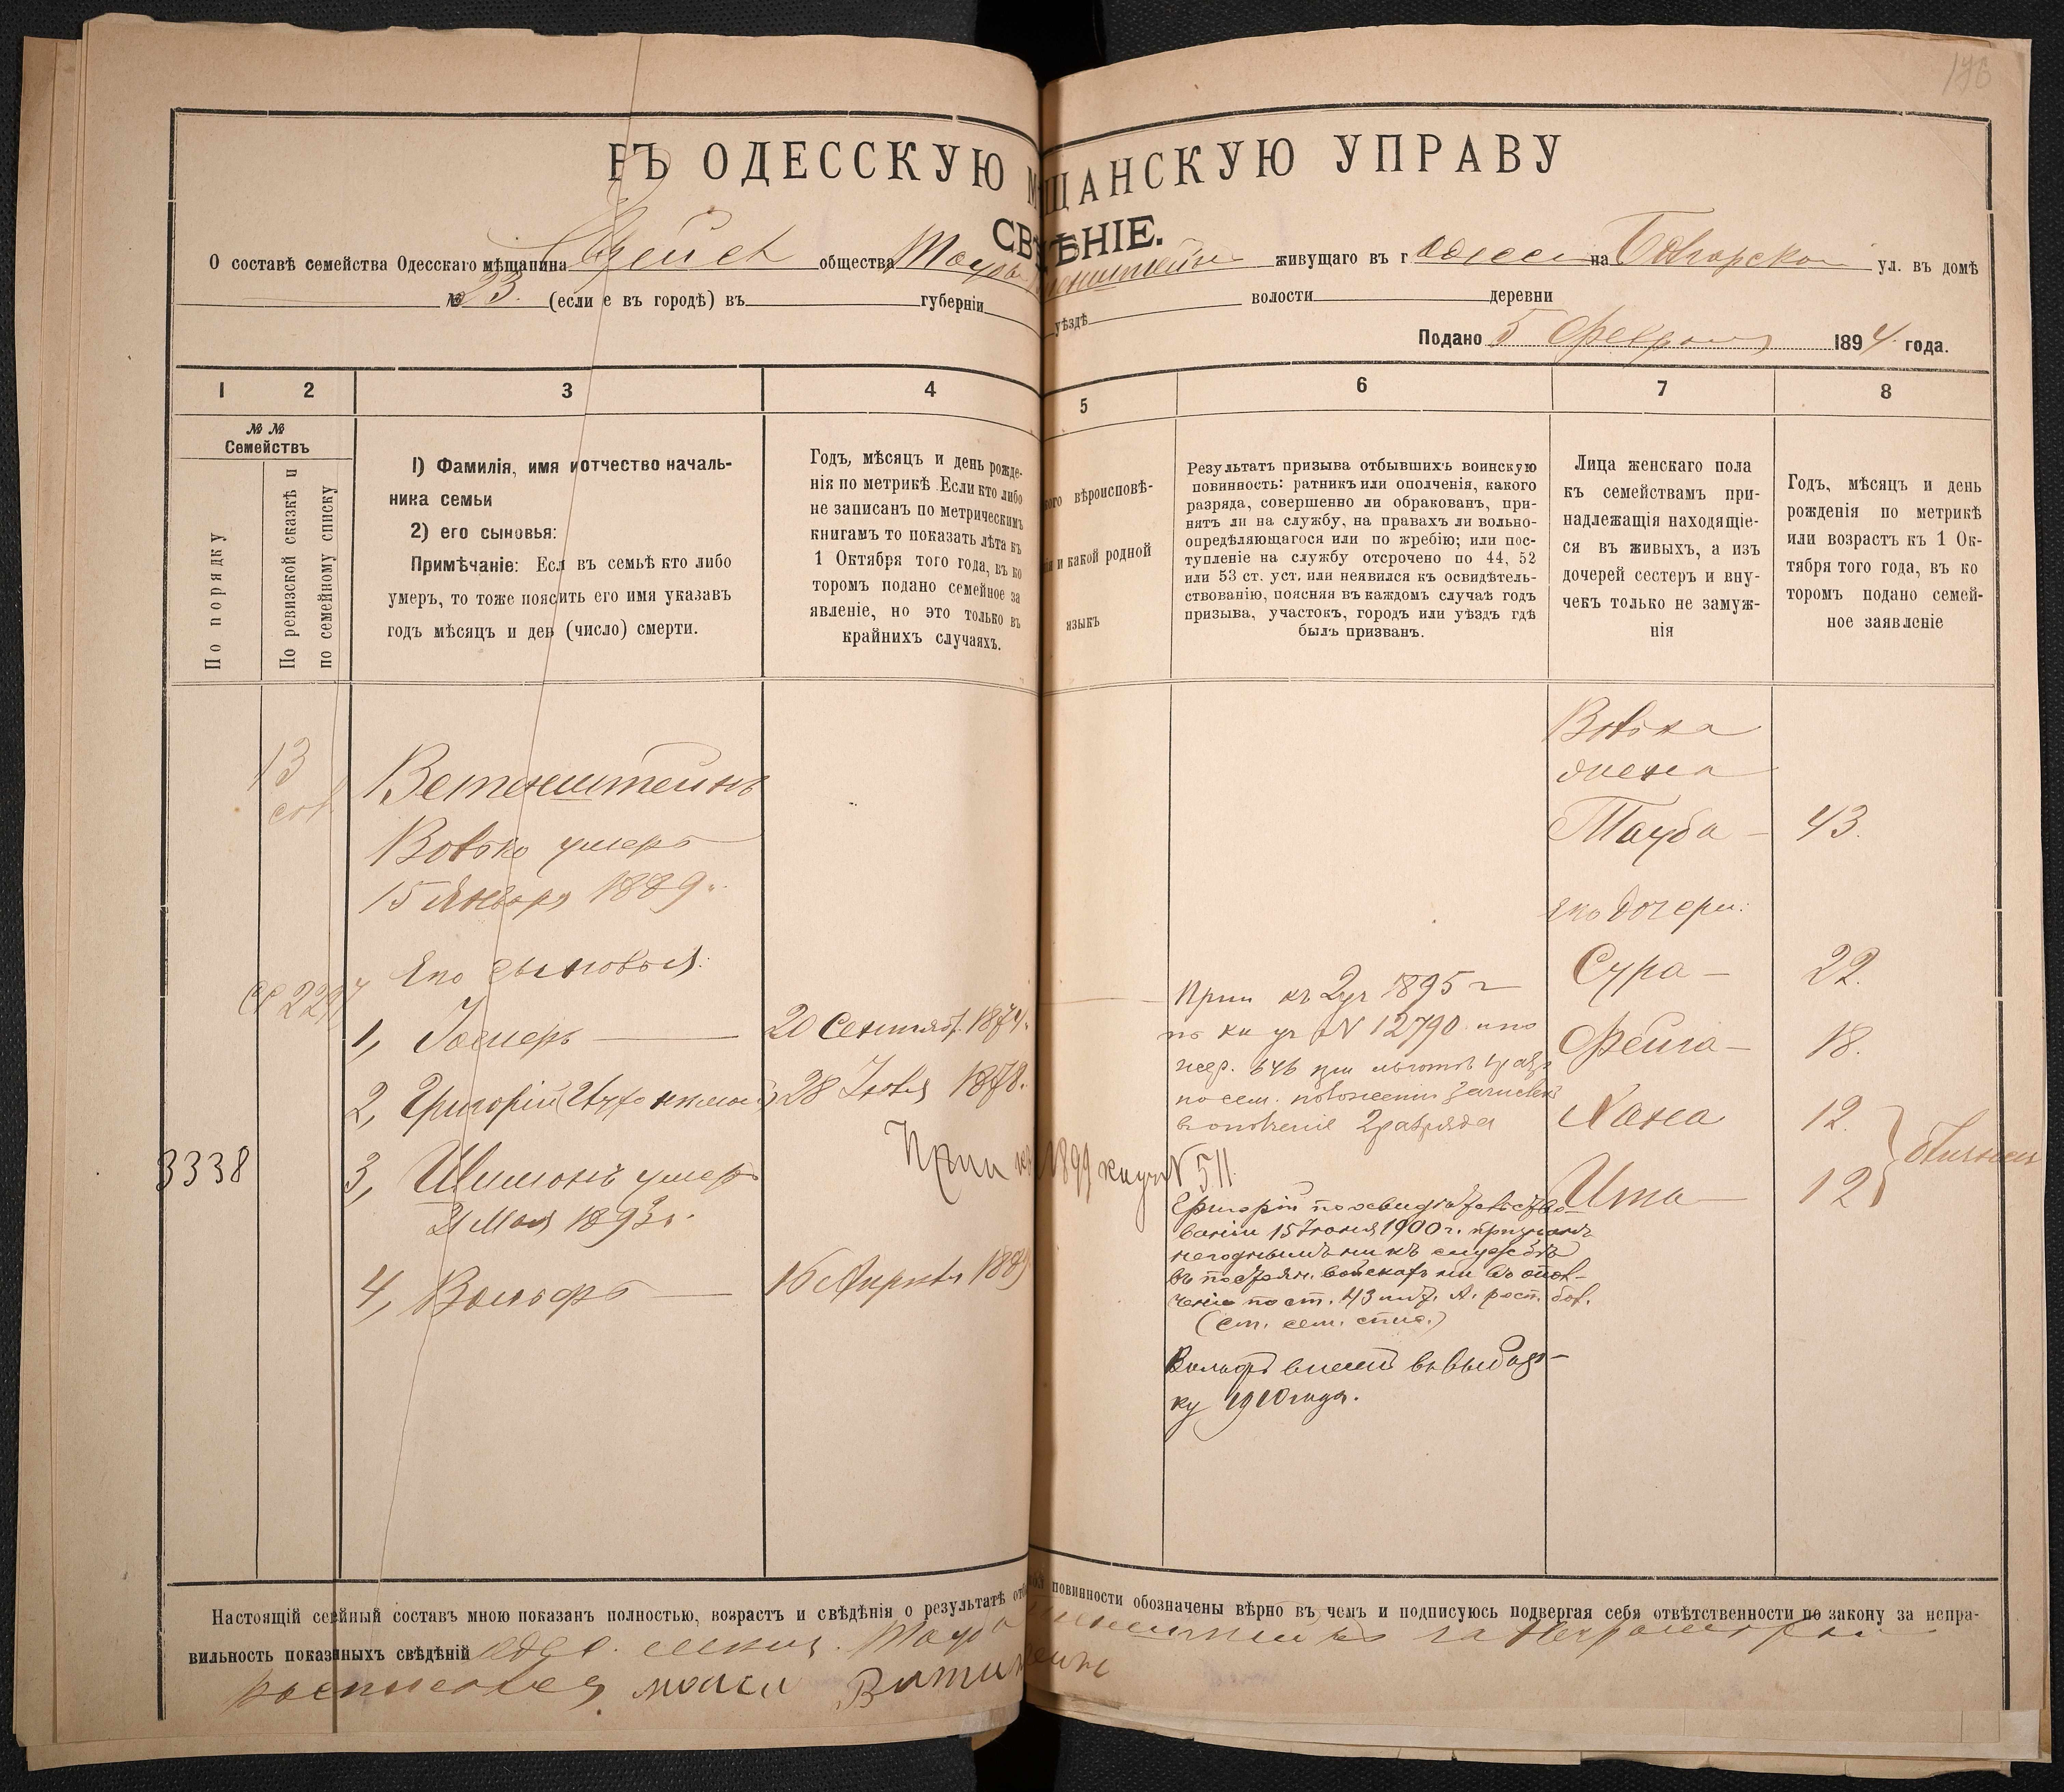 176
ВЪ ОДЕССКУЮ МѢЩАНСКУЮ УПРАВУ
СВѢДѢНІЕ.
О составѣ семейства Одесскаго мѣщанина Еврейск общества Тауба живущаго въ г Одессе на Болгарской ул. въ домѣ
№ 23. (если е въ городѣ) въ губерніи уѣздѣ волости деревни
Подано 5 Февраля 1894 года.
1 2 3 4 5 6 7 8
№ № Семействъ
По порядку
По ревизской сказкѣ и по семейному списку
1) Фамилія, имя и отчество началь-
ника семьи
2) его сыновья:
Примѣчаніе: Есл въ семьѣ кто либо
умеръ, то тоже пояснить его имя указавъ
годъ мѣсяцъ и ден (число) смерти.
Годъ, мѣсяцъ и день рожде-
нія по метрикѣ Если кто либо
не записанъ по метрическимъ
книгамъ то показать лѣта къ
1 Октября того года, въ ко
торомъ подано семейное за
явленіе, но это только въ
крайнихъ случаяхъ.
вѣроисповѣ-
и какой родной
языкъ
Результатъ призыва отбывшихъ воинскую
повинность: ратникъ или ополченія, какого
разряда, совершенно ли обракованъ, при-
нятъ ли на службу, на правахъ ли вольно-
опредѣляющагося или по жребію; или пос-
тупленіе на службу отсрочено по 44, 52
или 53 ст. уст. или неявился къ освидѣтель-
ствованію, поясняя въ каждомъ случаѣ годъ
призыва, участокъ, городъ или уѣздъ гдѣ
былъ призванъ.
Лица женскаго пола
къ семействамъ при-
надлежащія находящіе-
ся въ живыхъ, а изъ
дочерей сестеръ и вну-
чекъ только не замуж-
нія
Годъ, мѣсяцъ и день
рожденія по метрикѣ
или возрастъ къ 1 Ок-
тября того года, въ ко
торомъ подано семей-
ное заявленіе
13
Ветенштейнъ
Вовько умеръ
15 Января 1889 г.
Его сыновья:
1, Іосперъ — 20 Сентябр. 1874.
2, Григорій 28 Іюля 1878.
3338
3, Шимонъ умеръ
21 Мая 1893 г.
4, Вольфъ — 16 Апрѣля 1889
Прип къ 1899 № 511.
Прип къ 2 уч 1895 г
№ 12790
жер. 646 льготъ
по сем. положенію
в ополченіе 2 разряда
Григорій по освидѣтельство-
ваніи 15 Іюня 1900 г. признанъ
негоднымъ ни къ службѣ
въ постоян. войскахъ ни въ опол-
ченіе по ст. 43 лит. А. росп. бол.
(ст. сем. спис.)
Вольфъ внесен въ выбор-
ку 1910 года.
Вовька
жена
Тауба — 43.
Его дочери:
Сура — 22.
Фейга — 18.
Хана 12.
Ита — 12
близнецы
Настоящій семейный составъ мною показанъ полностью, возрастъ и свѣдѣнія о результатѣ повинности обозначены вѣрно въ чемъ и подписуюсь подвергая себя отвѣтственности по закону за непра-
вильность показанныхъ свѣдѣній